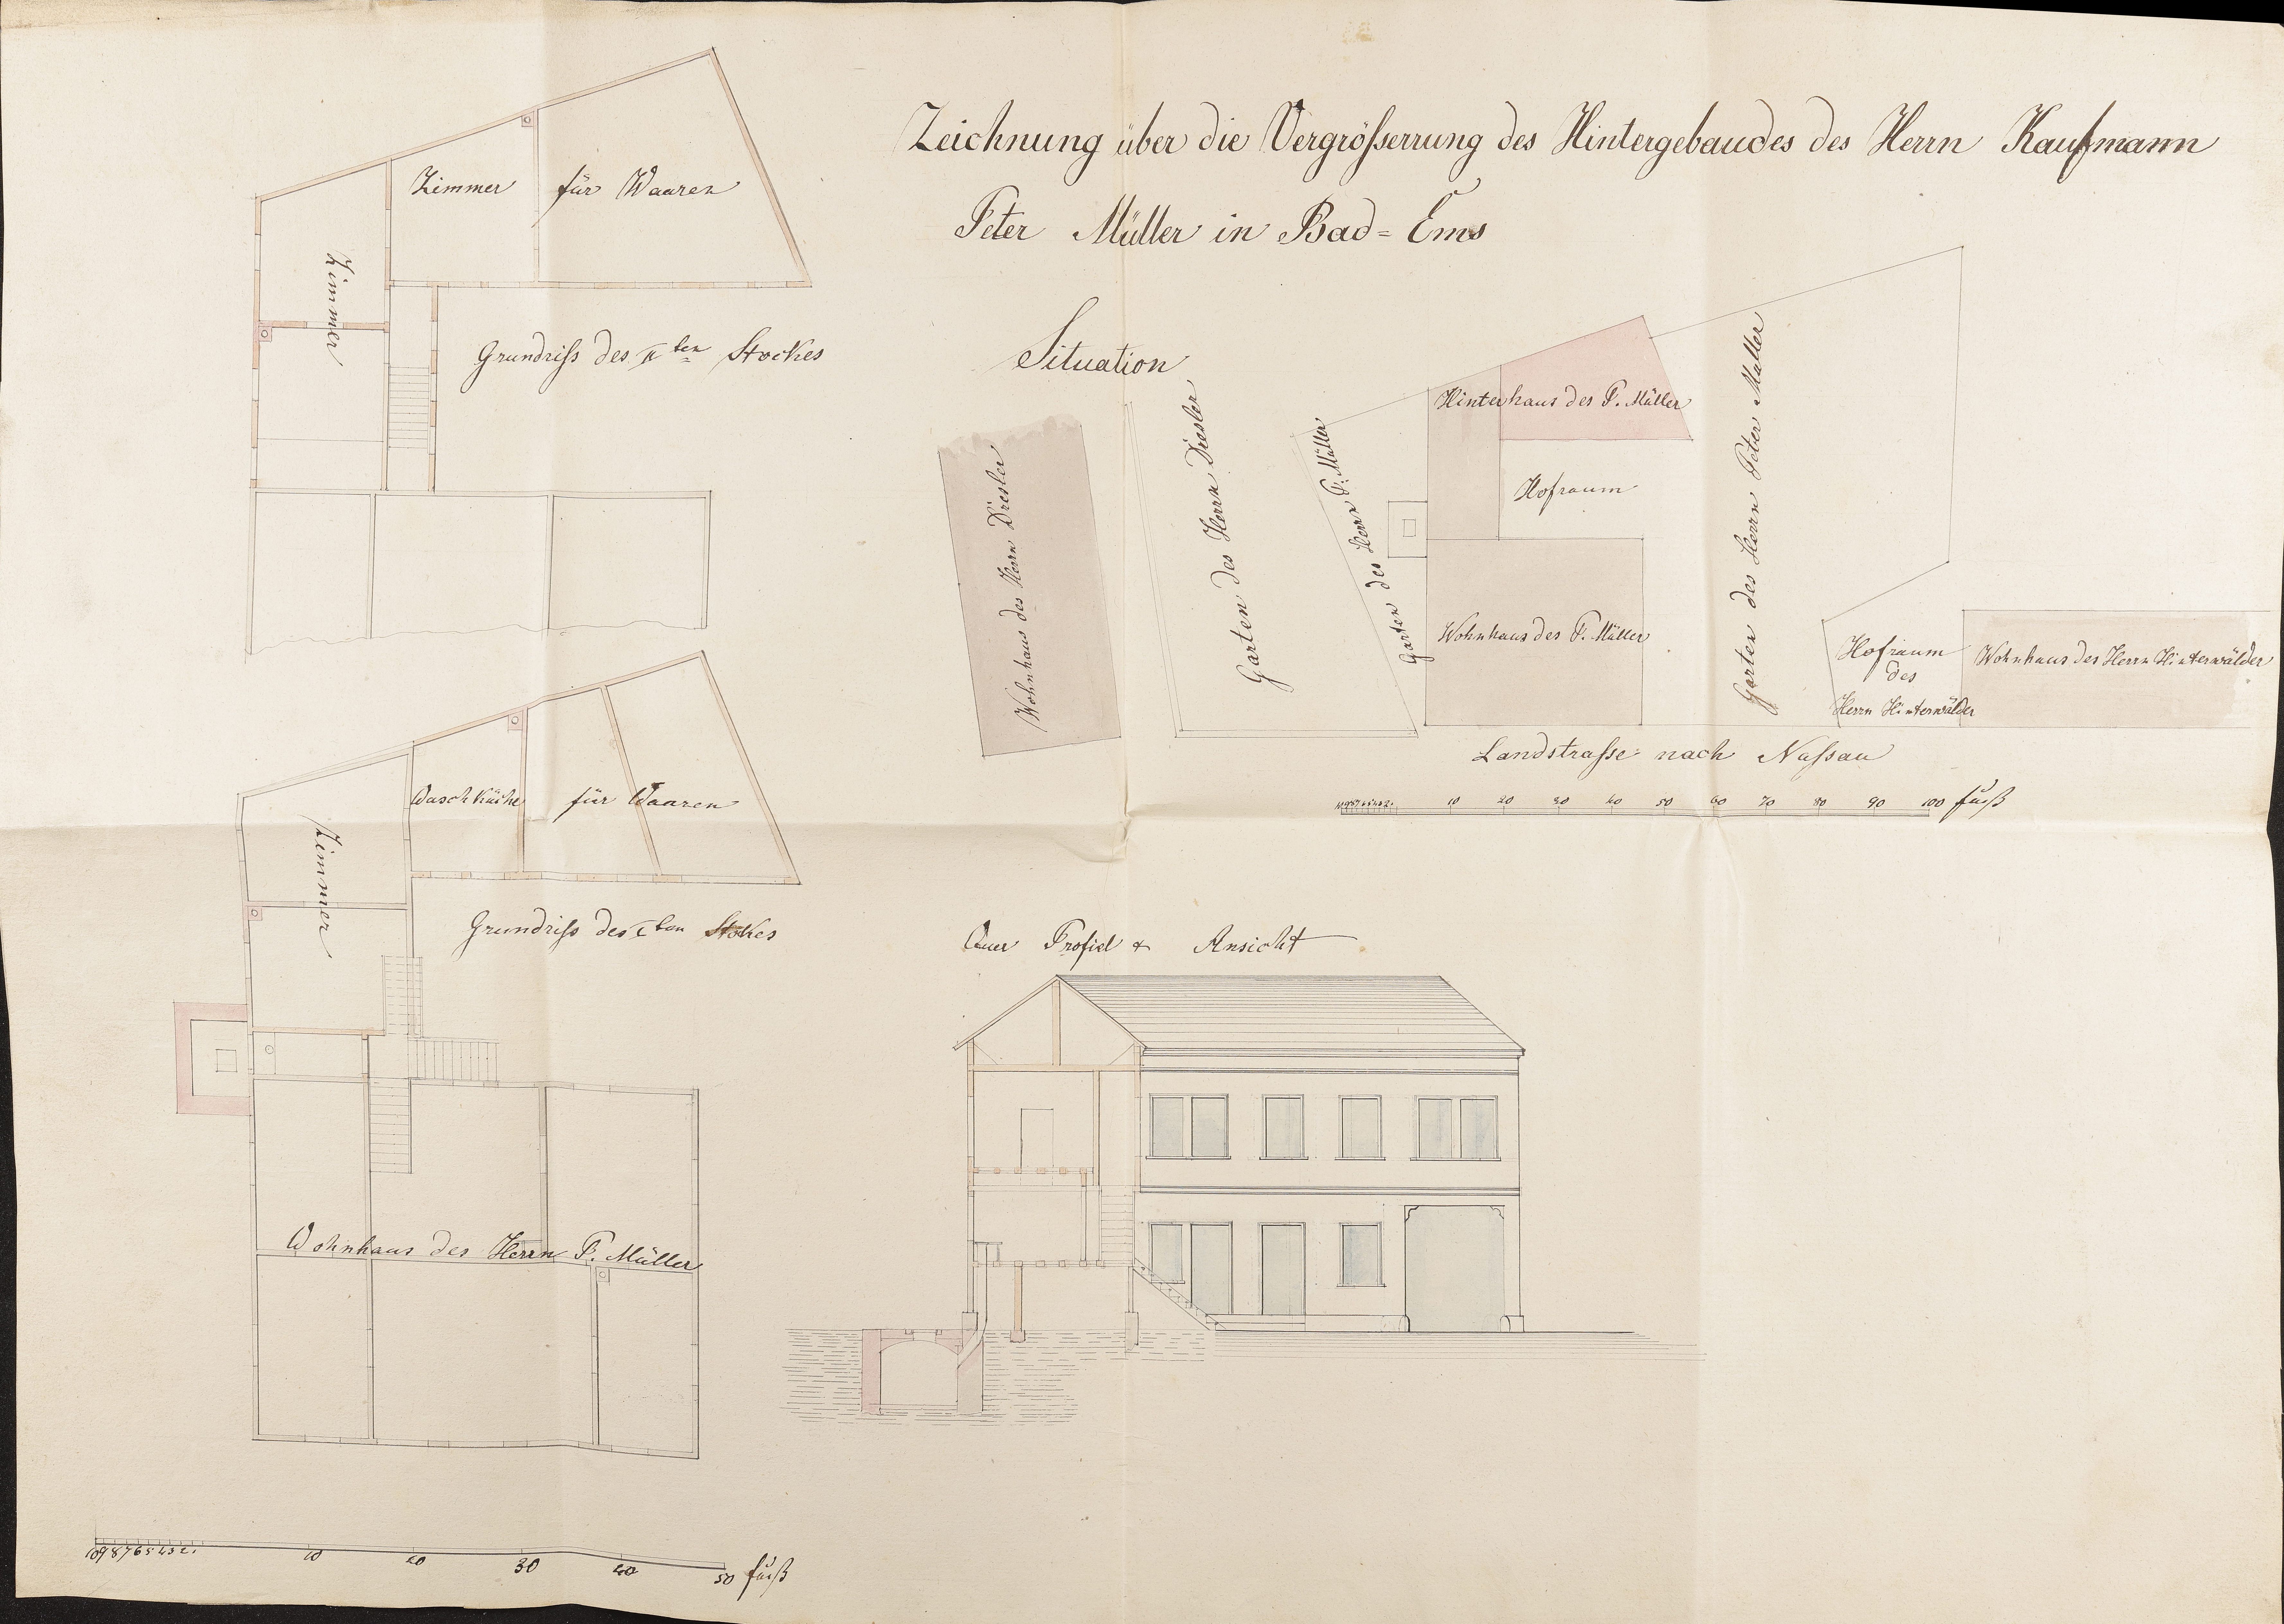 Zeichnung über die Vergrößerrung des Hintergebaudes des Herrn Kaufmann
Peter Müller in Bad=Ems
Zimmer für Waaren
Zimmer
Grundriß des II ten Stockes
Situation
Wohnhaus des Herrn Dresler
Garten des Herrn Dresler
Garten des Herrn P. Müller
Hinterhaus des P. Müller
Hofraum
Wohnhaus des P. Müller
Garten des Herrn Peter Müller
Hofraum
des
Herrn Hinterwälder
Wohnhaus des Herrn Hinterwälder
Landstraße nach Naßau
10 9 8 7 6 5 4 3 2 1 10 20 30 40 50 60 70 80 90 100 fuß
Waschküche für Waaren
Zimmer
Grundriß des I ten Stokes
Quer Profiel & Ansicht
Wohnhaus des Herrn P. Müller
10 9 8 7 6 5 4 3 2 1 10 20 30 40 50 fuß